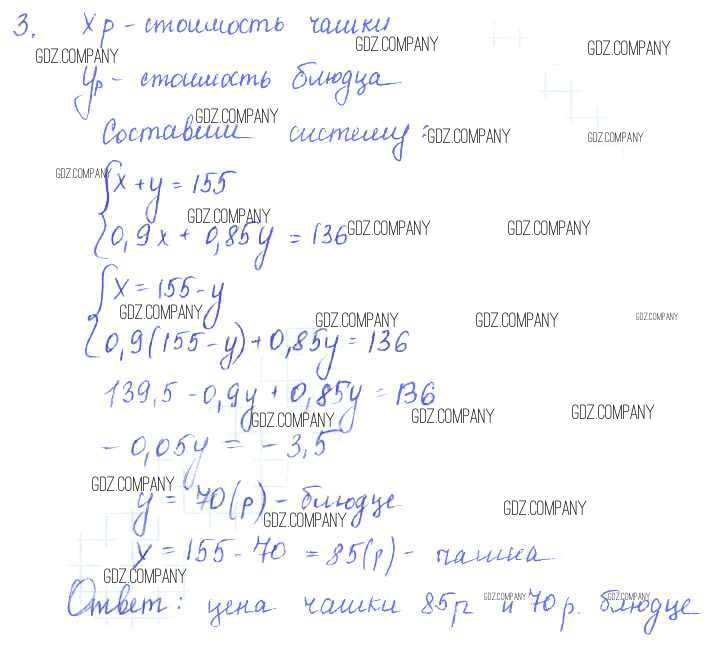 3. Xр - стоимость чашки
GDZ.COMPANY GDZ.COMPANY GDZ.COMPANY
Yр - стоимость блюдца
GDZ.COMPANY
Составим систему: GDZ.COMPANY GDZ.COMPANY
GDZ.COMPANY
{ x + y = 155
GDZ.COMPANY
0,9x + 0,85y = 136 GDZ.COMPANY GDZ.COMPANY
{ x = 155 - y
GDZ.COMPANY GDZ.COMPANY GDZ.COMPANY GDZ.COMPANY
0,9(155 - y) + 0,85y = 136
139,5 - 0,9y + 0,85y = 136
GDZ.COMPANY GDZ.COMPANY GDZ.COMPANY
- 0,05y = - 3,5
GDZ.COMPANY
y = 70(р) - блюдце GDZ.COMPANY
GDZ.COMPANY
x = 155 - 70 = 85(р) - чашка
GDZ.COMPANY
Ответ: цена чашки 85р GDZ.COMPANY и 70р. блюдце GDZ.COMPANY